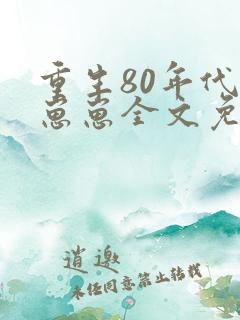 重生80年代
思思全文免
逍邀
未任同意禁止转载